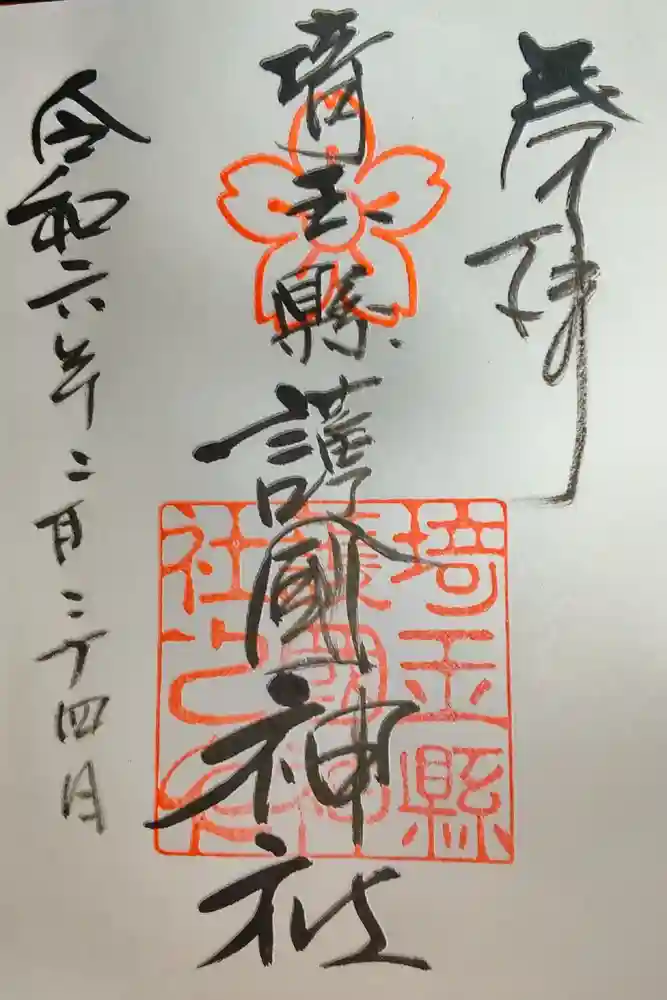 奉拝
埼玉縣護國神社
令和六年二月二十四日
埼玉縣
護國神
社之印